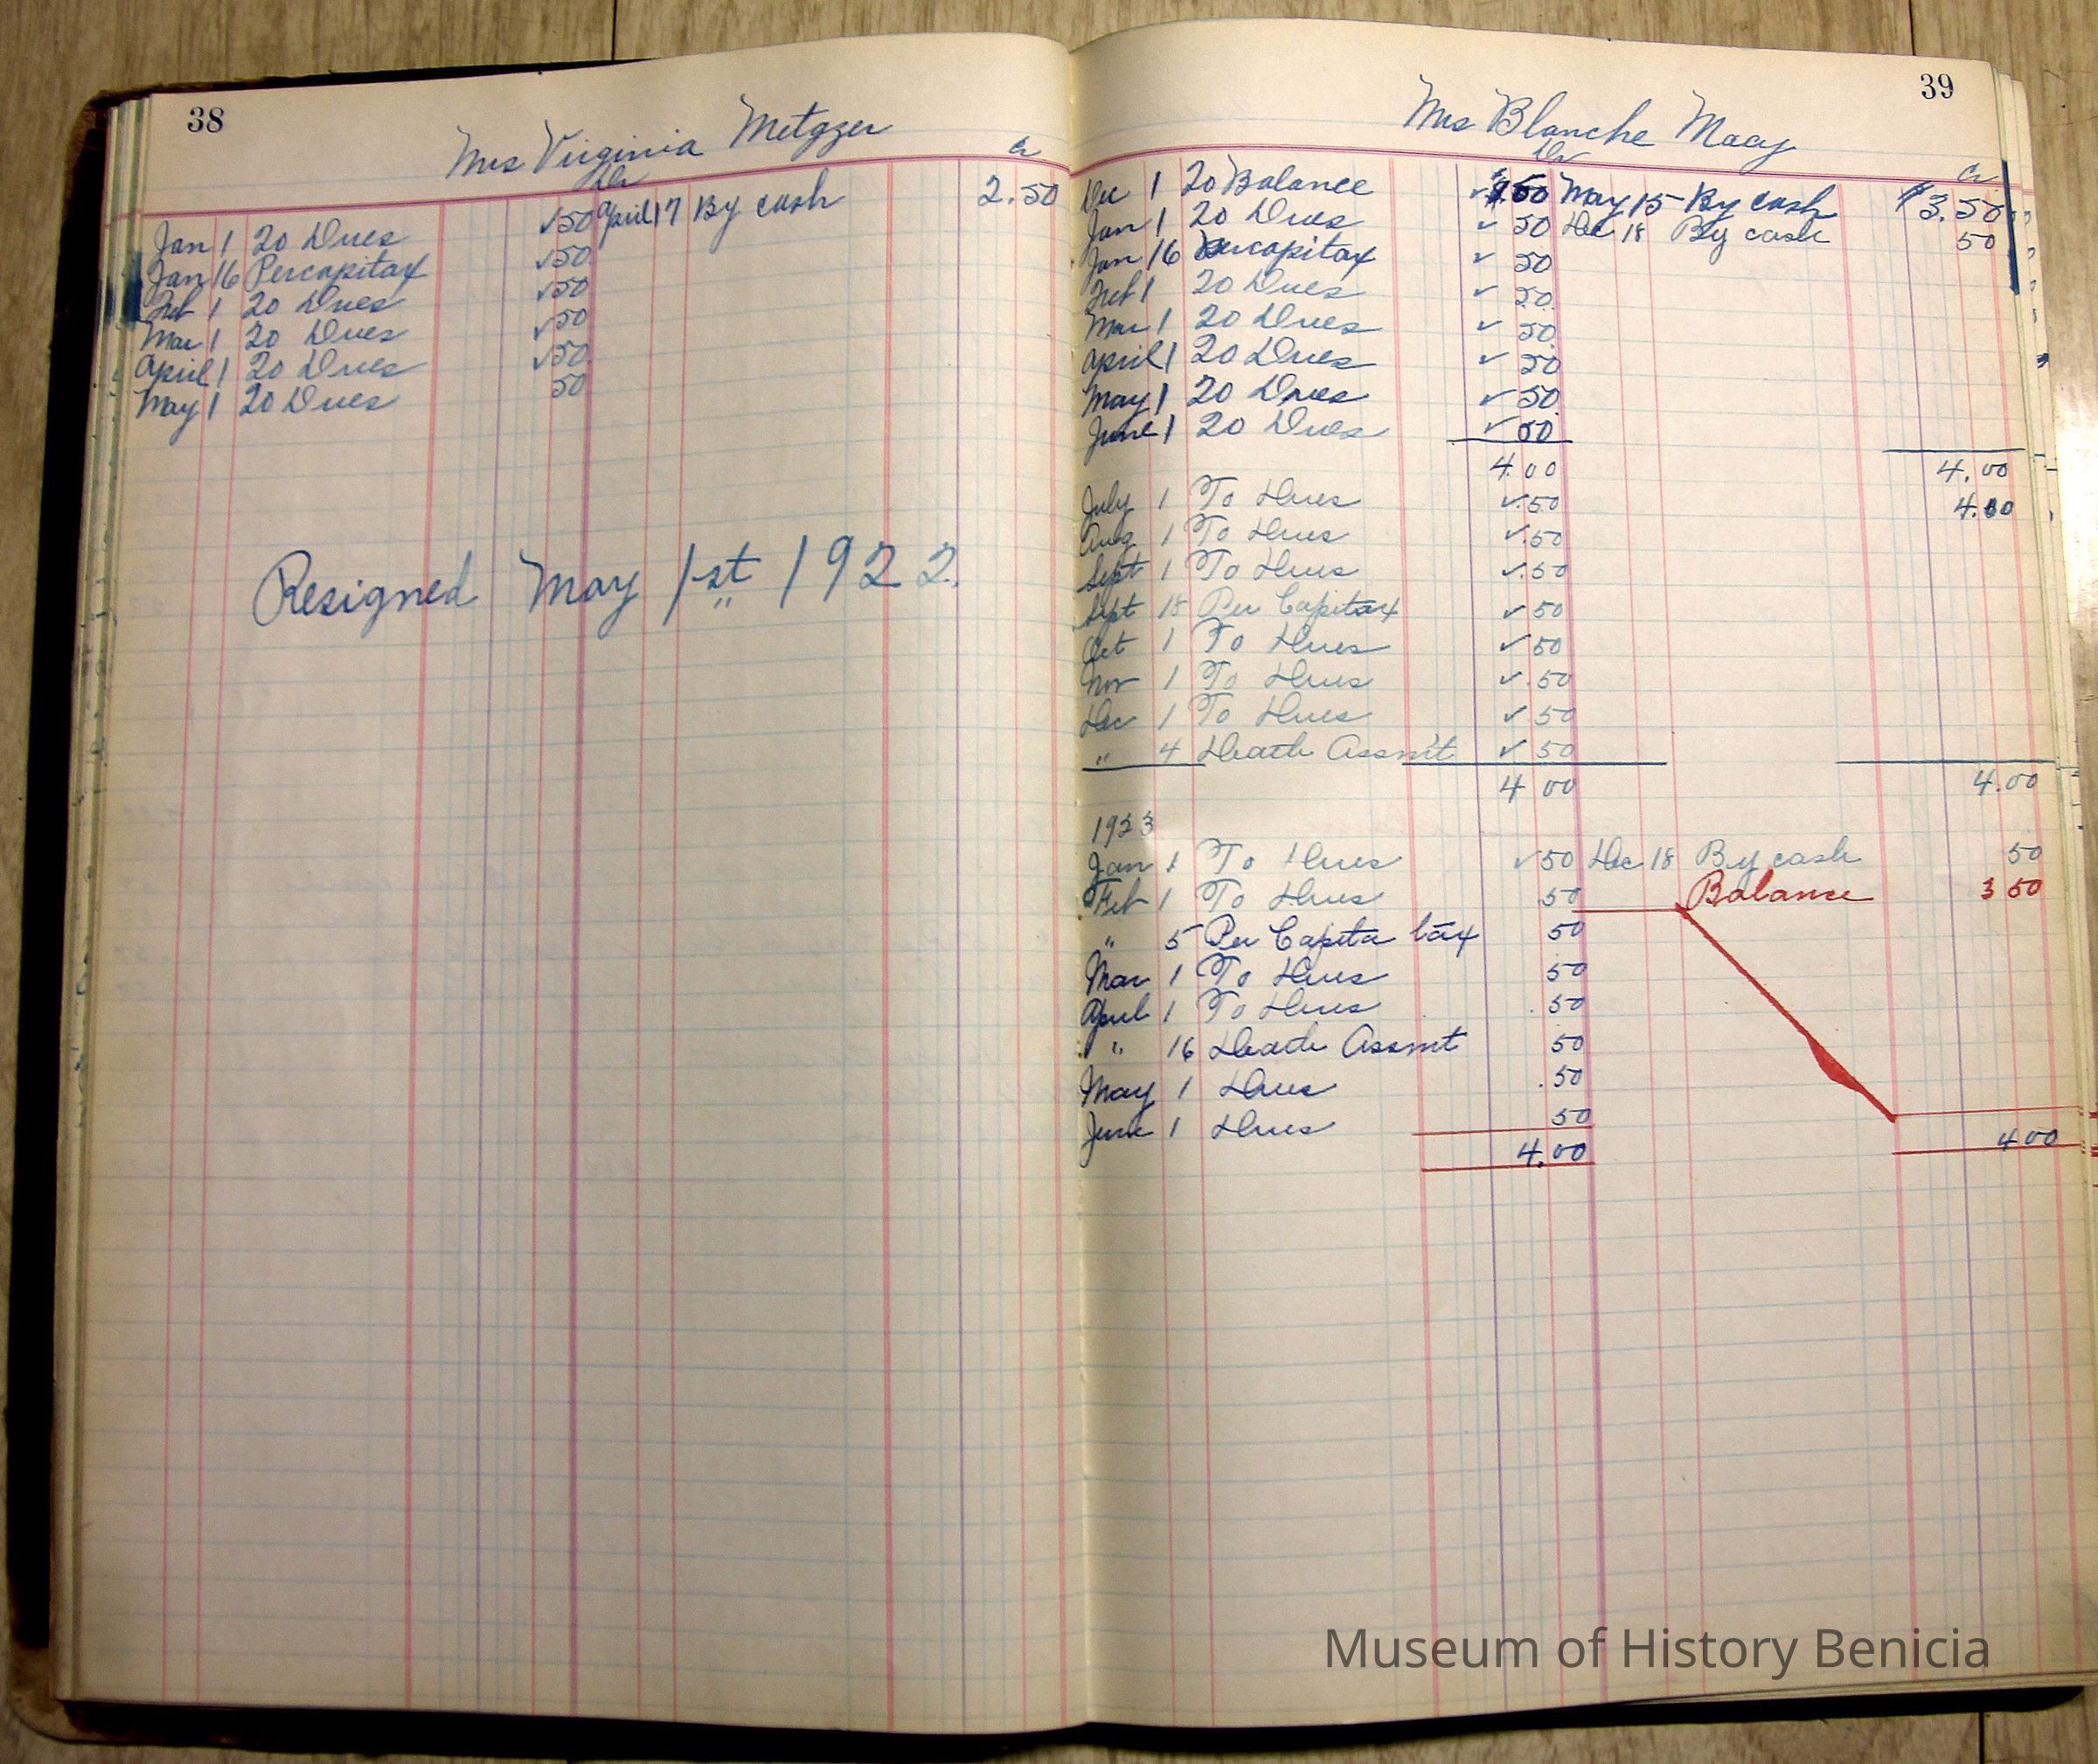 38
Mrs Virginia Metzger
Dr Cr
April 17 By cash 2.50
Jan 1 To Dues √50
Jan 16 Percapitax √50
Feb 1 To Dues √50
Mar 1 To Dues √50
April 1 To Dues √50
May 1 To Dues 50
Resigned May 1st 1922.
39
Mrs Blanche Macy
Dr Cr
Dec 1 To Balance √ .50 May 15 By cash $3.50
Jan 1 To Dues √ 50 Dec 18 By cash 50
Jan 16 Percapitax √ 50
Feb 1 To Dues √ 50
Mar 1 To Dues √ 50
April 1 To Dues √ 50
May 1 To Dues √ 50
June 1 To Dues √ 50
4.00 4.00
July 1 To Dues √.50 4.00
Aug 1 To Dues √.50
Sept 1 To Dues √.50
Sept 18 Per Capitax √ 50
Oct 1 To Dues √ 50
Nov 1 To Dues √.50
Dec 1 To Dues √ 50
" 4 Death Assm't √ 50
4 00 4.00
1923
Jan 1 To Dues √50 Dec 18 By cash 50
Feb 1 To Dues 50 Balance 3 50
" 5 Per Capita tax 50
Mar 1 To Dues 50
April 1 To Dues .50
" 16 Death Assmt 50
May 1 Dues .50
June 1 Dues 50
4.00 4 00
Museum of History Benicia